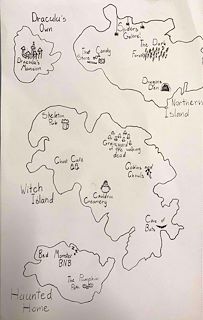 Dracula's
Own
Dracula's
Mansion
Spiders
Galore!
The Dark
Forest
That Candy
Store
Dragons
Den
Northern
Island
Skeleton
Pub
Graveyard
of the walking
dead
Ghost Cafe
Goblins
Ghouls
Witch
Island
Cauldron
Creamery
Cave of
Bats
Bed Monster
BNB
The Pumpkin
Patch
Haunted
Home